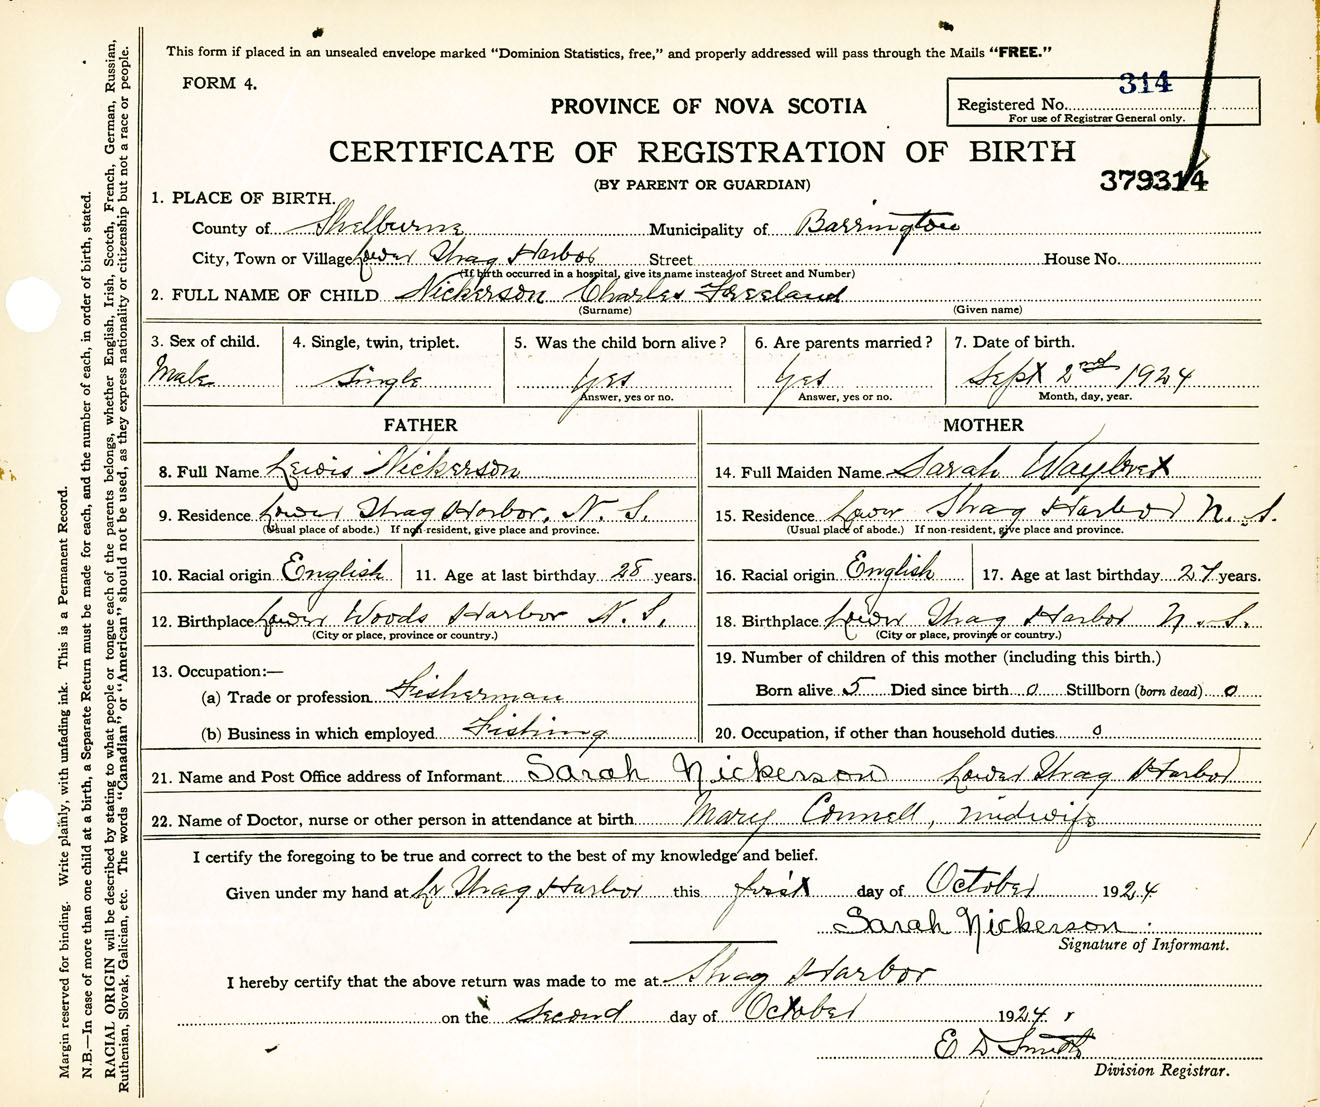 This form if placed in an unsealed envelope marked “Dominion Statistics, free,” and properly addressed will pass through the Mails “FREE.”
FORM 4.
314
Registered No.
For use of Registrar General only.
PROVINCE OF NOVA SCOTIA
CERTIFICATE OF REGISTRATION OF BIRTH
(BY PARENT OR GUARDIAN)
379314
1. PLACE OF BIRTH.
County of Shelburne Municipality of Barrington
City, Town or Village Lower Shag Harbor Street House No.
(If birth occurred in a hospital, give its name instead of Street and Number)
2. FULL NAME OF CHILD Nickerson Charles Freeland
(Surname) (Given name)
3. Sex of child. 4. Single, twin, triplet. 5. Was the child born alive? 6. Are parents married? 7. Date of birth.
Male Single Yes Yes Sept 2nd 1924
Answer, yes or no. Answer, yes or no. Month, day, year.
FATHER MOTHER
8. Full Name Lewis Nickerson 14. Full Maiden Name Sarah
9. Residence Lower Shag Harbor, N. S. 15. Residence Lower Shag Harbor N. S.
(Usual place of abode.) If non-resident, give place and province. (Usual place of abode.) If non-resident, give place and province.
10. Racial origin English 11. Age at last birthday 28 years. 16. Racial origin English 17. Age at last birthday 27 years.
12. Birthplace Lower Woods Harbor N. S. 18. Birthplace Lower Shag Harbor N. S.
(City or place, province or country.) (City or place, province or country.)
13. Occupation:— 19. Number of children of this mother (including this birth.)
(a) Trade or profession Fisherman Born alive 5 Died since birth 0 Stillborn (born dead) 0
(b) Business in which employed Fishing 20. Occupation, if other than household duties 0
21. Name and Post Office address of Informant Sarah Nickerson Lower Shag Harbor
22. Name of Doctor, nurse or other person in attendance at birth Mary Connell, midwife
I certify the foregoing to be true and correct to the best of my knowledge and belief.
Given under my hand at Lr Shag Harbor this first day of October 1924
Sarah Nickerson
Signature of Informant.
I hereby certify that the above return was made to me at Shag Harbor
on the second day of October 1924
E D Smith
Division Registrar.
Margin reserved for binding. Write plainly, with unfading ink. This is a Permanent Record.
N.B.—In case of more than one child at a birth, a Separate Return must be made for each, and the number of each, in order of birth, stated.
RACIAL ORIGIN will be described by stating to what people or tongue each of the parents belongs, whether English, Irish, Scotch, French, German, Russian,
Ruthenian, Slovak, Galician, etc. The words “Canadian” or “American” should not be used, as they express nationality or citizenship but not a race or people.